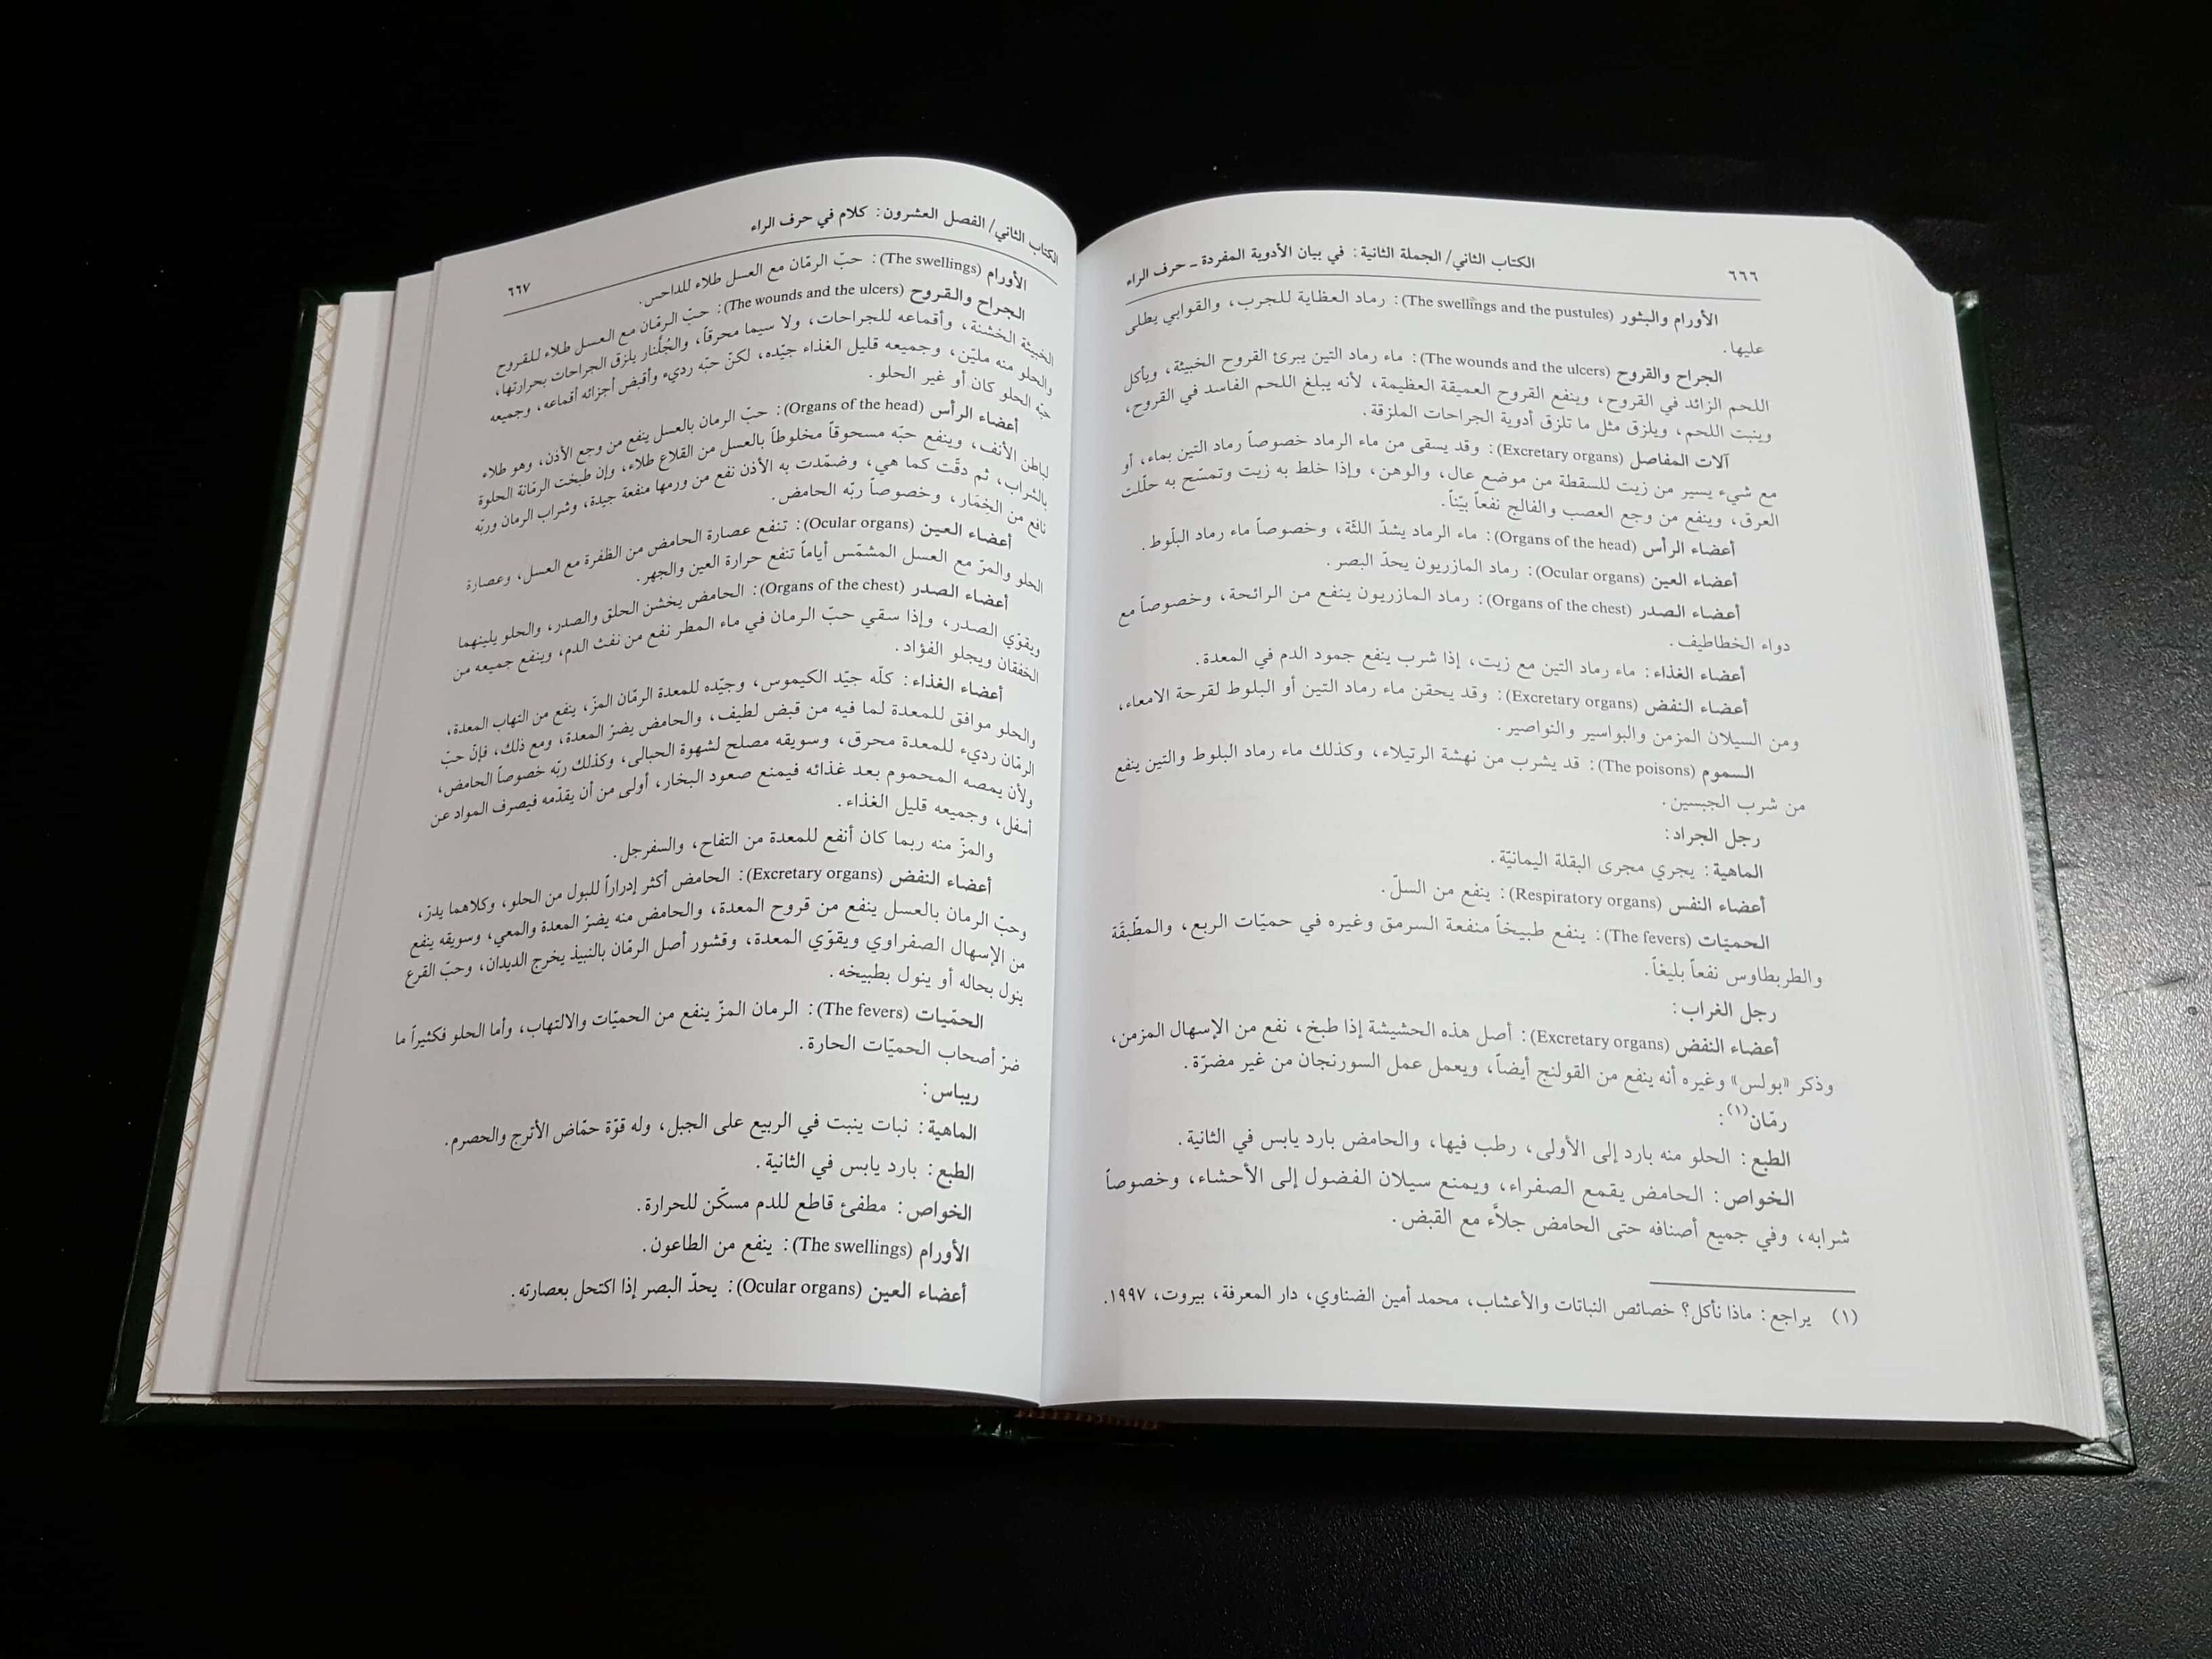 ٦٦٦
الكتاب الثاني/ الجملة الثانية: في بيان الأدوية المفردة ـ حرف الراء
الأورام والبثور (The swellings and the pustules): رماد العظاية للجرب، والقوابي يطلى
عليها.
الجراح والقروح (The wounds and the ulcers): ماء رماد التين يبرئ القروح الخبيثة، ويأكل
اللحم الزائد في القروح، وينفع القروح العميقة العظيمة، لأنه يبلغ اللحم الفاسد في القروح،
وينبت اللحم، ويلزق مثل ما تلزق أدوية الجراحات الملزقة.
آلات المفاصل (Excretary organs): وقد يسقى من ماء الرماد خصوصاً رماد التين بماء، أو
مع شيء يسير من زيت للسقطة من موضع عال، والوهن، وإذا خلط به زيت وتمسّح به حلّلت
العرق، وينفع من وجع العصب والفالج نفعاً بيّناً.
أعضاء الرأس (Organs of the head): ماء الرماد يشدّ اللثّة، وخصوصاً ماء رماد البلّوط.
أعضاء العين (Ocular organs): رماد المازريون يحدّ البصر.
أعضاء الصدر (Organs of the chest): رماد المازريون ينفع من الرائحة، وخصوصاً مع
دواء الخطاطيف.
أعضاء الغذاء: ماء رماد التين مع زيت، إذا شرب ينفع جمود الدم في المعدة.
أعضاء النفض (Excretary organs): وقد يحقن ماء رماد التين أو البلوط لقرحة الامعاء،
ومن السيلان المزمن والبواسير والنواصير.
السموم (The poisons): قد يشرب من نهشة الرتيلاء، وكذلك ماء رماد البلوط والتين ينفع
من شرب الجبسين.
رجل الجراد:
الماهية: يجري مجرى البقلة اليمانيّة.
أعضاء النفس (Respiratory organs): ينفع من السلّ.
الحميّات (The fevers): ينفع طبيخاً منفعة السرمق وغيره في حميّات الربع، والمطّبقَة
والطربطاوس نفعاً بليغاً.
رجل الغراب:
أعضاء النفض (Excretary organs): أصل هذه الحشيشة إذا طبخ، نفع من الإسهال المزمن،
وذكر «بولس» وغيره أنه ينفع من القولنج أيضاً، ويعمل عمل السورنجان من غير مضرّة.
رمّان(١):
الطبع: الحلو منه بارد إلى الأولى، رطب فيها، والحامض بارد يابس في الثانية.
الخواص: الحامض يقمع الصفراء، ويمنع سيلان الفضول إلى الأحشاء، وخصوصاً
شرابه، وفي جميع أصنافه حتى الحامض جلاًء مع القبض.
(١) يراجع: ماذا نأكل؟ خصائص النباتات والأعشاب، محمد أمين الضناوي، دار المعرفة، بيروت، ١٩٩٧.
الكتاب الثاني/ الفصل العشرون: كلام في حرف الراء
٦٦٧
الأورام (The swellings): حبّ الرمّان مع العسل طلاء للداحس.
الجراح والقروح (The wounds and the ulcers): حبّ الرمّان مع العسل طلاء للقروح
الخبيثة الخشنة، وأقماعه للجراحات، ولا سيما محرقاً، والجُلّنار يلزق الجراحات بحرارتها،
والحلو منه مليّن، وجميعه قليل الغذاء جيّده، لكنّ حبّه رديء وأقبض أجزائه أقماعه، وجميعه
حبّه الحلو كان أو غير الحلو.
أعضاء الرأس (Organs of the head): حبّ الرمان بالعسل ينفع من وجع الأذن، وهو طلاء
لباطن الأنف، وينفع حبّه مسحوقاً مخلوطاً بالعسل من القلاع طلاء، وإن طبخت الرمّانة الحلوة
بالشراب، ثم دقّت كما هي، وضمّدت به الأذن نفع من ورمها منفعة جيدة، وشراب الرمان وربّه
نافع من الخمّار، وخصوصاً ربّه الحامض.
أعضاء العين (Ocular organs): تنفع عصارة الحامض من الظفرة مع العسل، وعصارة
الحلو والمزّ مع العسل المشمّس أياماً تنفع حرارة العين والجهر.
أعضاء الصدر (Organs of the chest): الحامض يخشن الحلق والصدر، والحلو يلينهما
ويقوّي الصدر، وإذا سقي حبّ الرمان في ماء المطر نفع من نفث الدم، وينفع جميعه من
الخفقان ويجلو الفؤاد.
أعضاء الغذاء: كلّه جيّد الكيموس، وجيّده للمعدة الرمّان المزّ، ينفع من التهاب المعدة،
والحلو موافق للمعدة لما فيه من قبض لطيف، والحامض يضرّ المعدة، ومع ذلك، فإنّ حبّ
الرمّان رديء للمعدة محرق، وسويقه مصلح لشهوة الحبالى، وكذلك ربّه خصوصاً الحامض،
ولأن يمصه المحموم بعد غذائه فيمنع صعود البخار، أولى من أن يقدّمه فيصرف المواد عن
أسفل، وجميعه قليل الغذاء.
والمزّ منه ربما كان أنفع للمعدة من التفاح، والسفرجل.
أعضاء النفض (Excretary organs): الحامض أكثر إدراراً للبول من الحلو، وكلاهما يدرّ،
وحبّ الرمان بالعسل ينفع من قروح المعدة، والحامض منه يضرّ المعدة والمعي، وسويقه ينفع
من الإسهال الصفراوي ويقوّي المعدة، وقشور أصل الرمّان بالنبيذ يخرج الديدان، وحبّ القرع
ينول بحاله أو ينول بطبيخه.
الحمّيات (The fevers): الرمان المزّ ينفع من الحميّات والالتهاب، وأما الحلو فكثيراً ما
ضرّ أصحاب الحميّات الحارة.
ريباس:
الماهية: نبات ينبت في الربيع على الجبل، وله قوّة حمّاض الأترج والحصرم.
الطبع: بارد يابس في الثانية.
الخواص: مطفئ قاطع للدم مسكّن للحرارة.
الأورام (The swellings): ينفع من الطاعون.
أعضاء العين (Ocular organs): يحدّ البصر إذا اكتحل بعصارته.